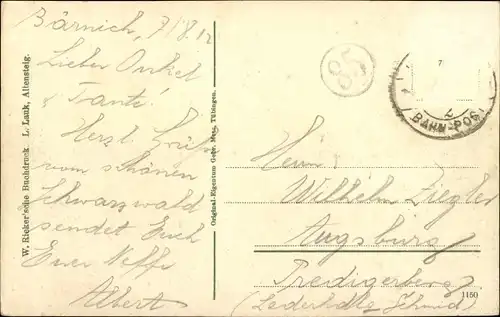 Bärnich, 7/8.12
Lieber Onkel
& Tante!
Herzl. Grüße
vom schönen
Schwarzwald
sendet Euch
Euer Neffe
Albert
W. Rieker'sche Buchdruck. L. Lauk, Altensteig.
Original-Eigentum Gebr. Metz, Tübingen.
85
7
2
BAHNPOS
Herrn
Wilhelm Ziegler
Augsburg
Predigerberg
(Lederhdlg. Schmid)
1150